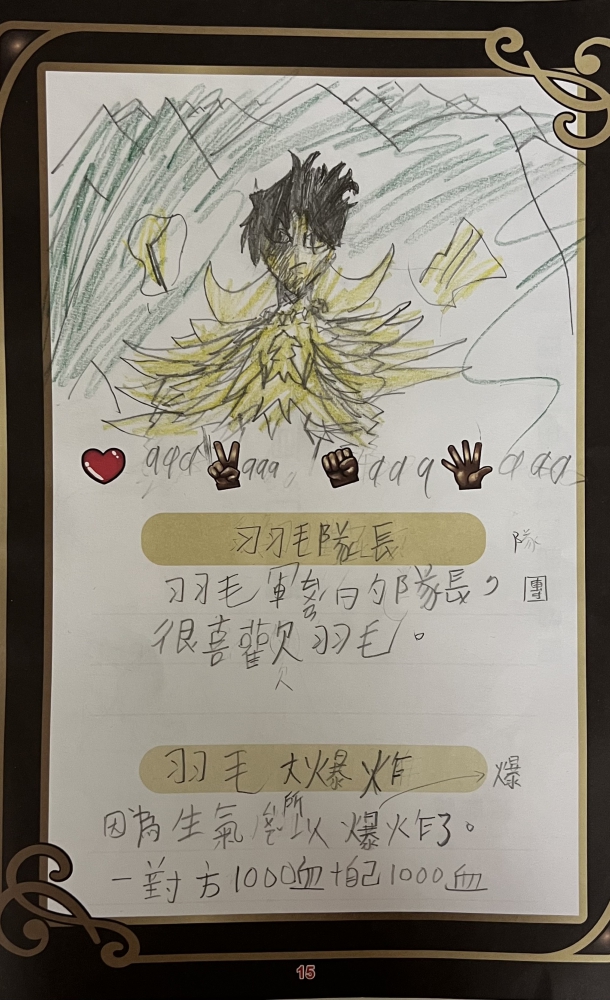 999 999 999 999
羽羽毛隊長
隊
羽羽毛軍團的隊長，
團
很喜歡羽毛。
欠
羽毛大爆炸
爆
因為生氣所以爆炸了。
－對方1000血+自己1000血
15